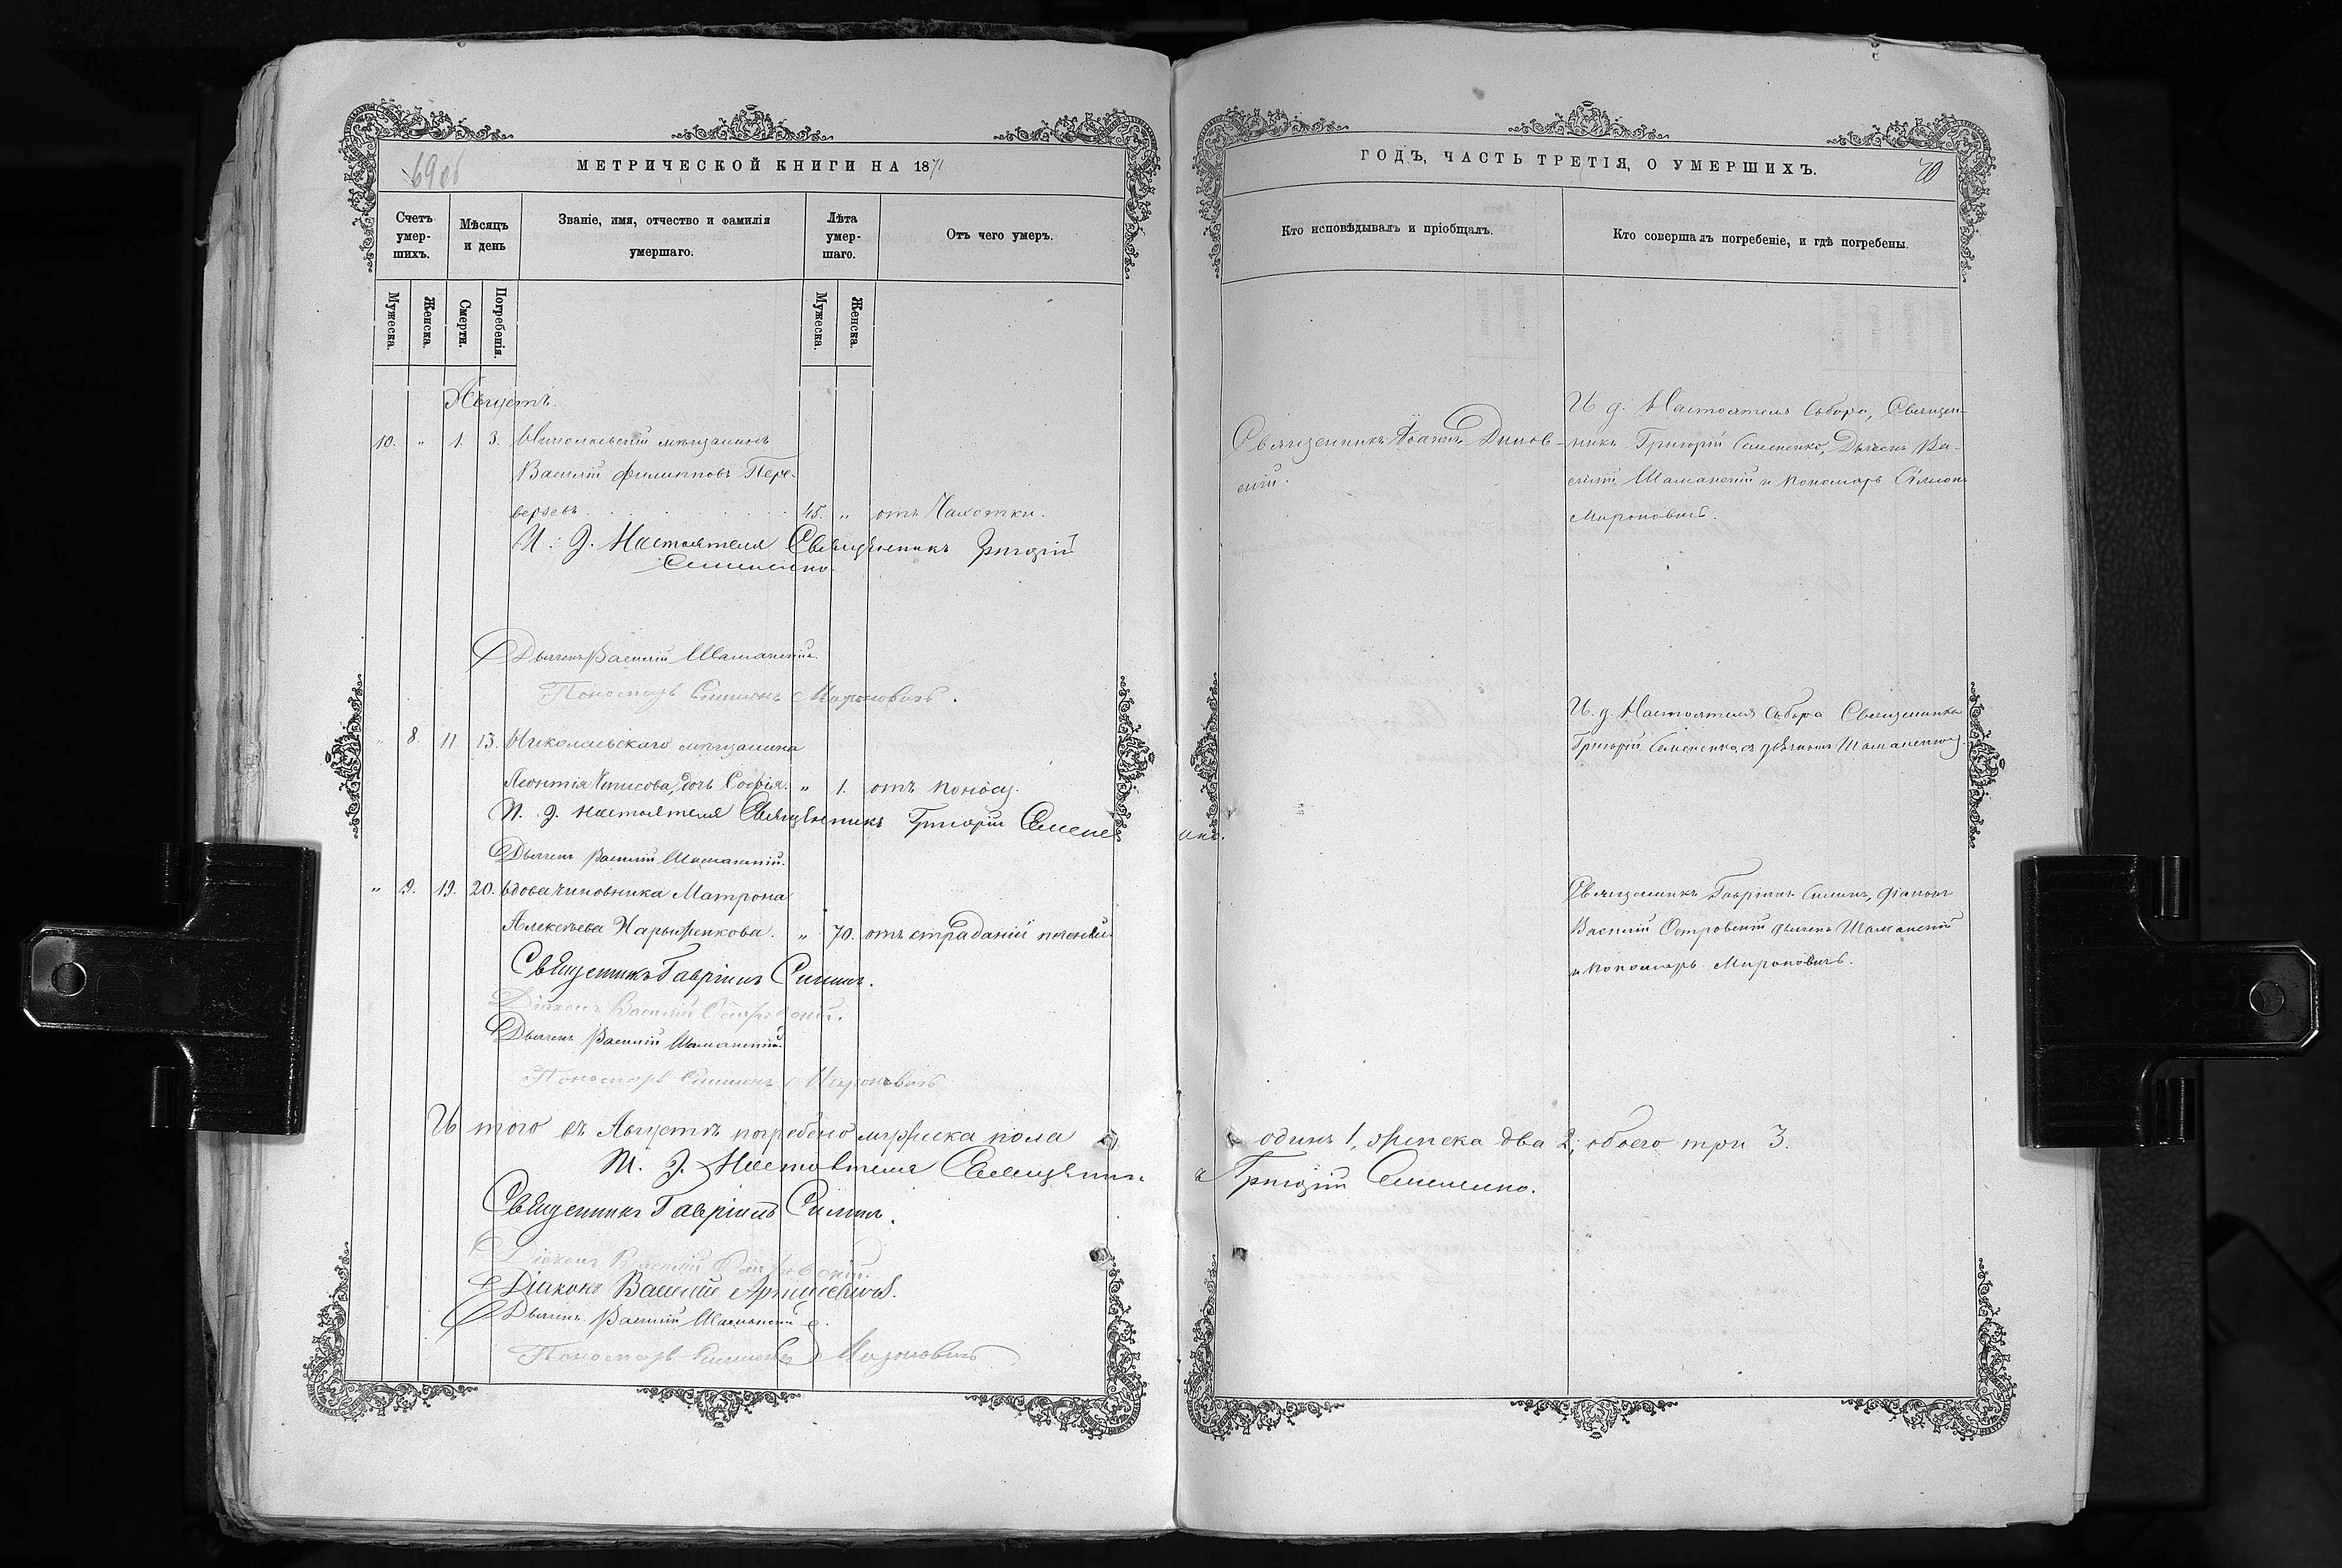 69об
МЕТРИЧЕСКОЙ КНИГИ НА 1871
Счетъ умер-шихъ.
Мѣсяцъ и день
Званіе, имя, отчество и фамилія умершаго.
Лѣта умер-шаго.
Отъ чего умеръ.
Мужеска.
Женска.
Смерти.
Погребенія.
Мужеска.
Женска.
Августъ.
10. " 1. 3. Николаевскій мѣщанинъ
Василій Филипповъ Пере-
верзевъ 45. " отъ Чахотки.
И. Д. Настоятеля Священникъ Григорій
Семененко
Дьячекъ Василій Шаманскій.
Пономарь Симеонъ Мироновичъ.
" 8. 11. 13. Николаевскаго мѣщанина
Леонтія дочь Софія. " 1. отъ поносу.
И. д. настоятеля Священникъ Григорій Семене
Дьячекъ Василій Шаманскій.
" 9. 19. 20. вдова чиновника Матрона
Алексѣева " 70. отъ страданій печени.
Священникъ Гавріилъ
Діаконъ Василій Островскій.
Дьячекъ Василій Шаманскій.
Пономарь Симеонъ Мироновичъ
И того въ Августѣ погребено мужеска пола
И. Д. Настоятеля Священни
Священникъ Гавріилъ
Діаконъ Василій Островскій.
Діаконъ Василій
Дьячекъ Василій Шаманскій
Пономарь Симеонъ Мироновичъ
ГОДЪ, ЧАСТЬ ТРЕТІЯ, О УМЕРШИХЪ.
70
Кто исповѣдывалъ и пріобщалъ.
Кто совершалъ погребеніе, и гдѣ погребены.
И. д. Настоятеля Собора, Священ-
Священникъ Іоаннъ
никъ Григорій Семененко, Дьячекъ Ва-
скій.
силій Шаманскій и пономарь Симеонъ
Мироновичъ.
И. д. Настоятеля Собора Священника
Григорій Семененко, съ дьячкомъ Шаманскимъ.
нко.
Священникъ Гавріилъ діаконъ
Василій Островскій дьячекъ Шаманскій
и пономарь Мироновичъ.
одинъ 1, женска два 2, обоего три 3.
ъ Григорій Семененко.